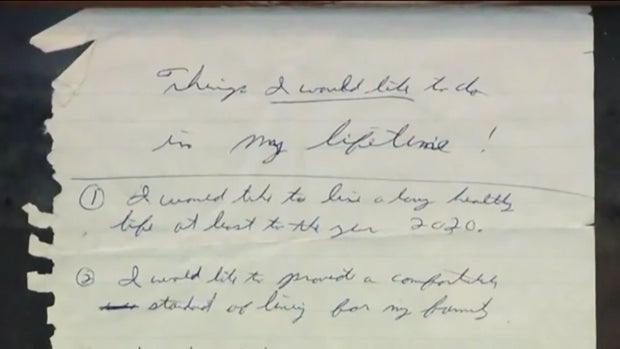 Things I would like to do
in my lifetime!
① I would like to live a long healthy
life at least to the year 2020.
② I would like to provide a comfortable
standard of living for my family